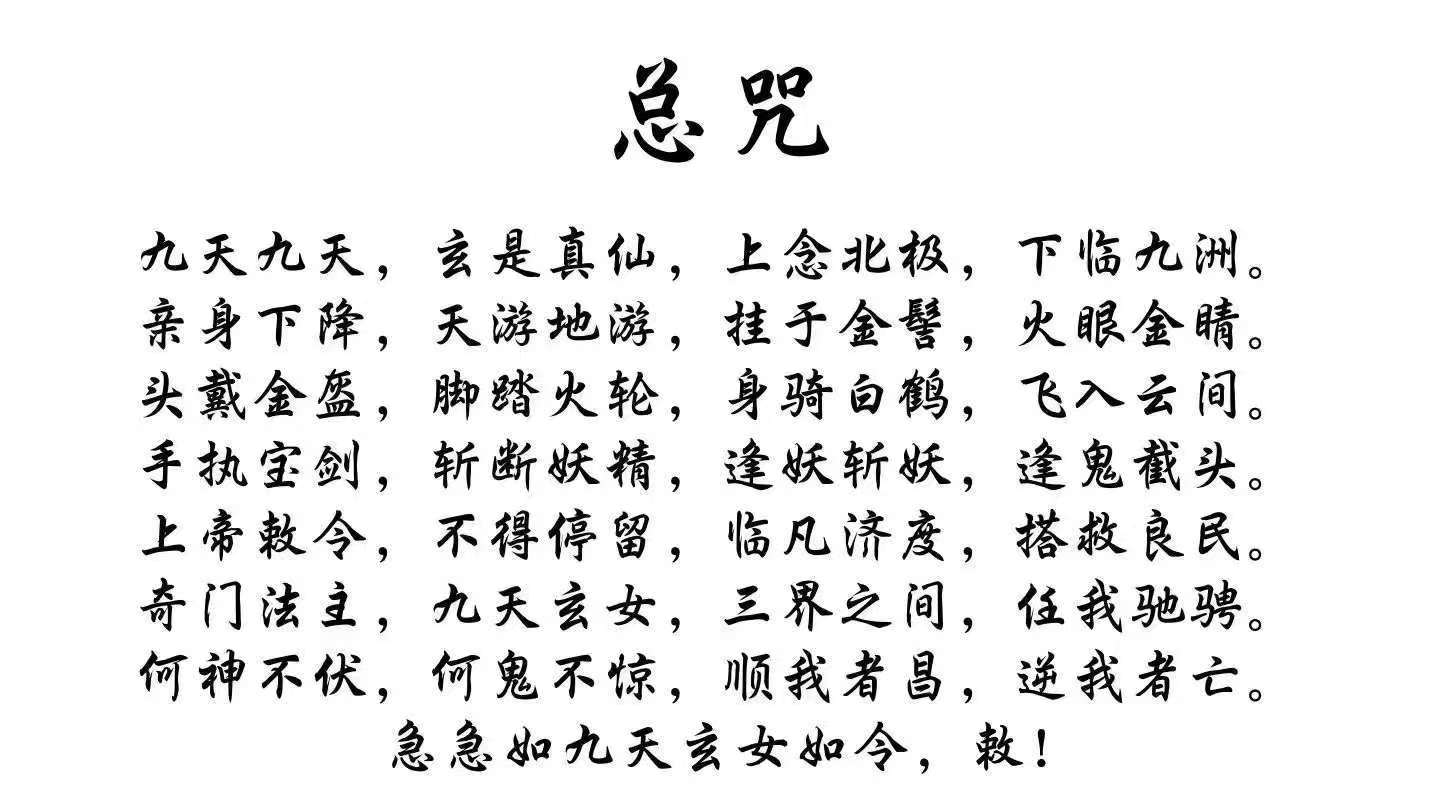 总咒
九天九天，玄是真仙，上念北极，下临九洲。
亲身下降，天游地游，挂于金髻，火眼金睛。
头戴金盔，脚踏火轮，身骑白鹤，飞入云间。
手执宝剑，斩断妖精，逢妖斩妖，逢鬼截头。
上帝敕令，不得停留，临凡济度，搭救良民。
奇门法主，九天玄女，三界之间，任我驰骋。
何神不伏，何鬼不惊，顺我者昌，逆我者亡。
急急如九天玄女如令，敕！